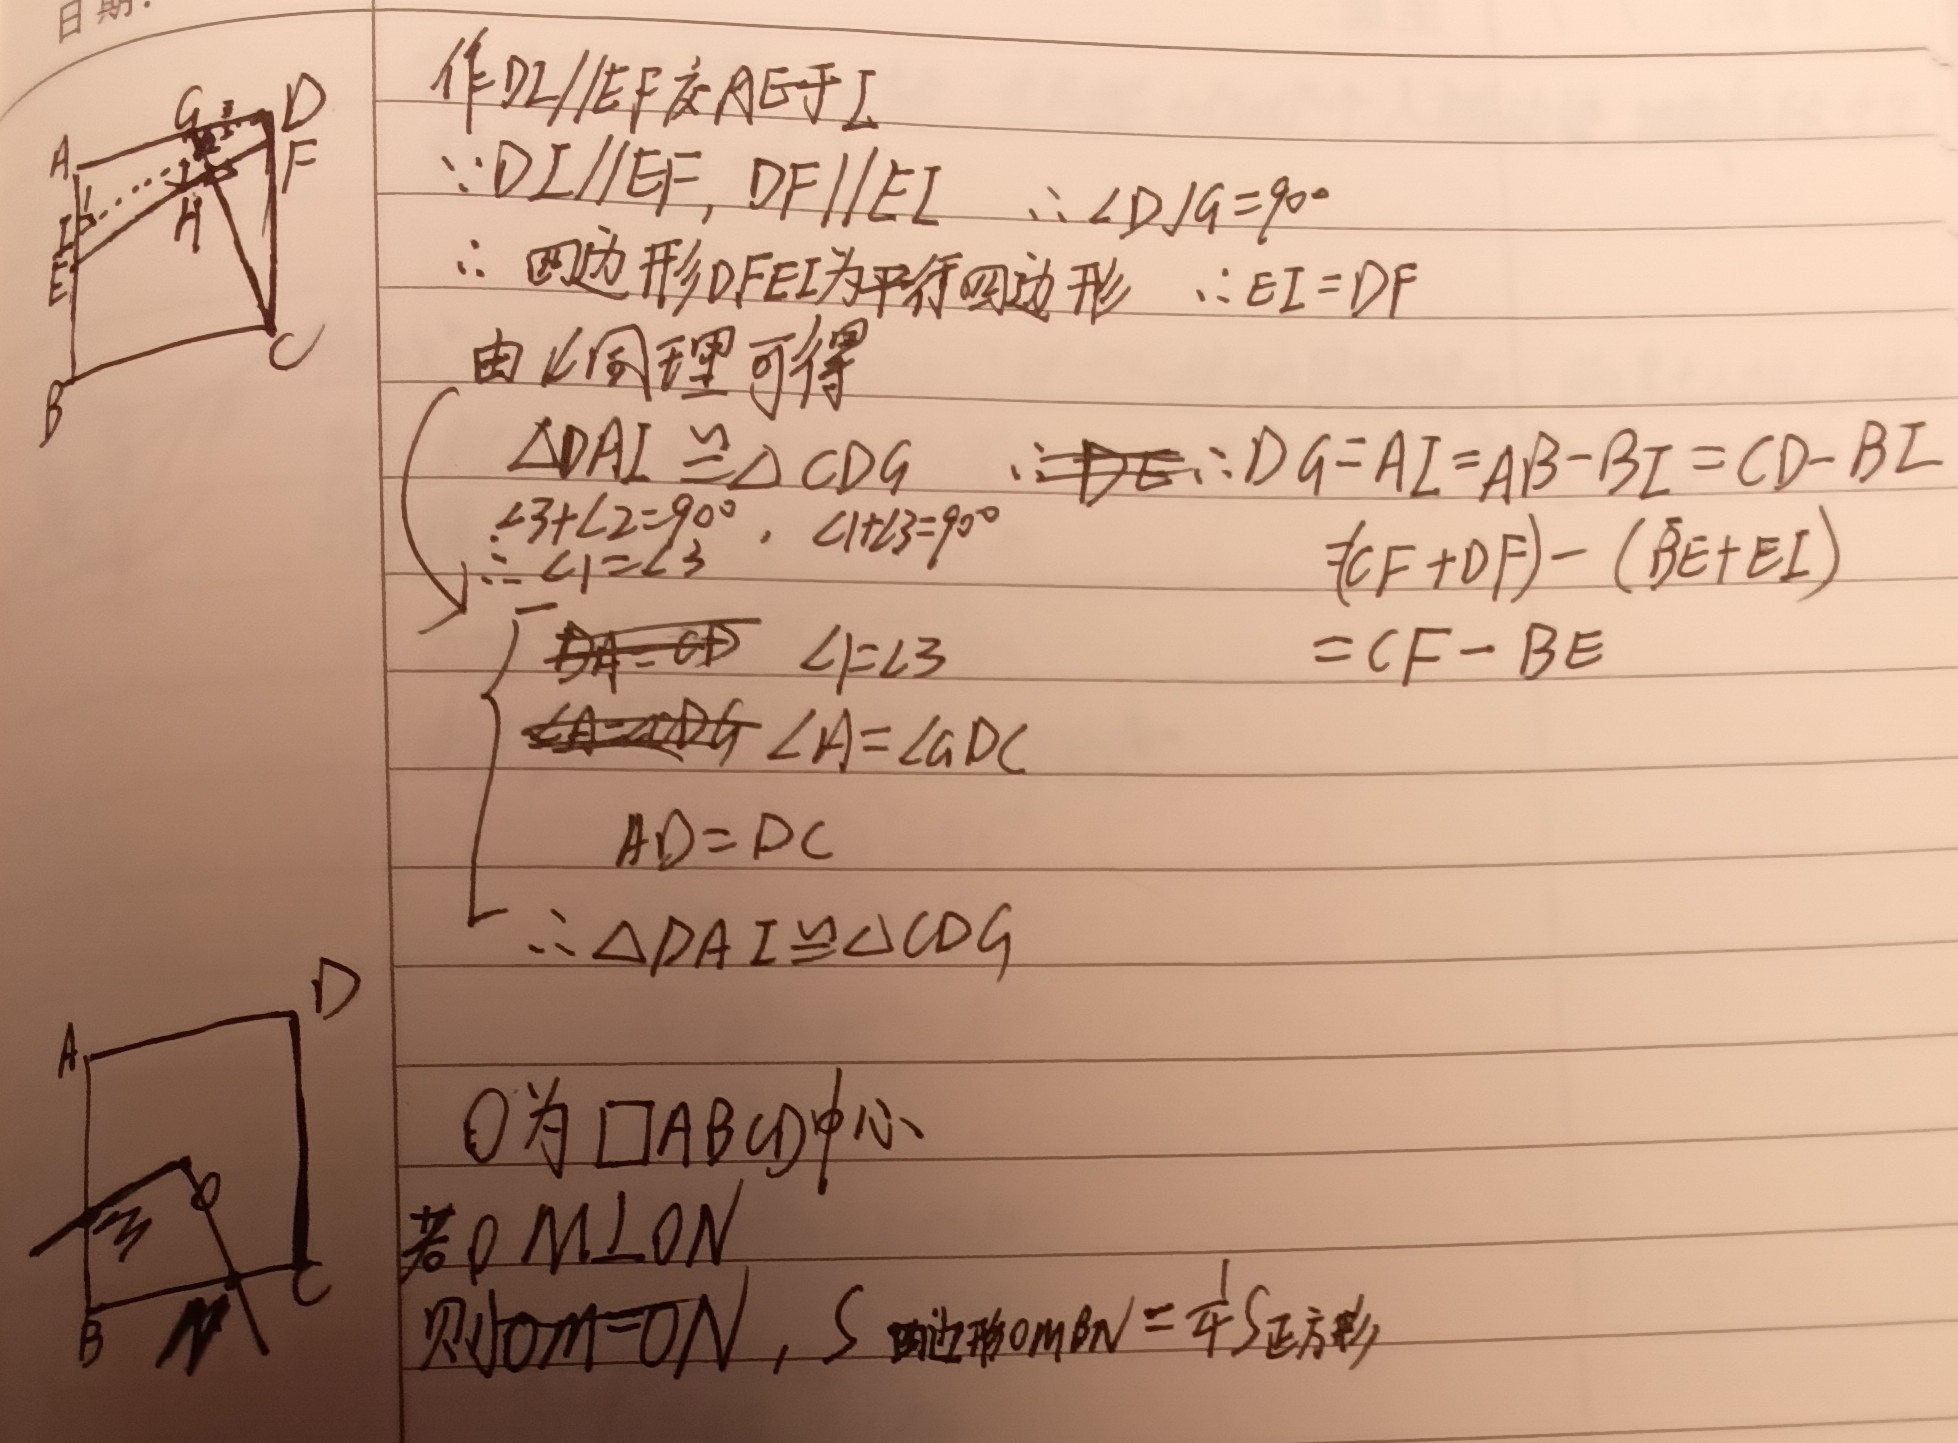 日期:
作DI//EF交AE于I
∵DI//EF, DF//EI ∴∠DJG=90°
∴四边形DFEI为平行四边形 ∴EI=DF
同理可得
△DAI≌△CDG ∴DG=AI=AB-BI=CD-BI
∠3+∠2=90°, ∠1+∠3=90°
=(CF+DF)-(BE+EI)
∴∠1=∠3
=CF-BE
∠1=∠3
∠A=∠GDC
AD=DC
∴△DAI≌△CDG
G D
A F
I H
E
C
B
O为□ABCD中心
若OM⊥ON
则OM=ON, S四边形OMBN=1/4S正方形
D
A
O
C
B N